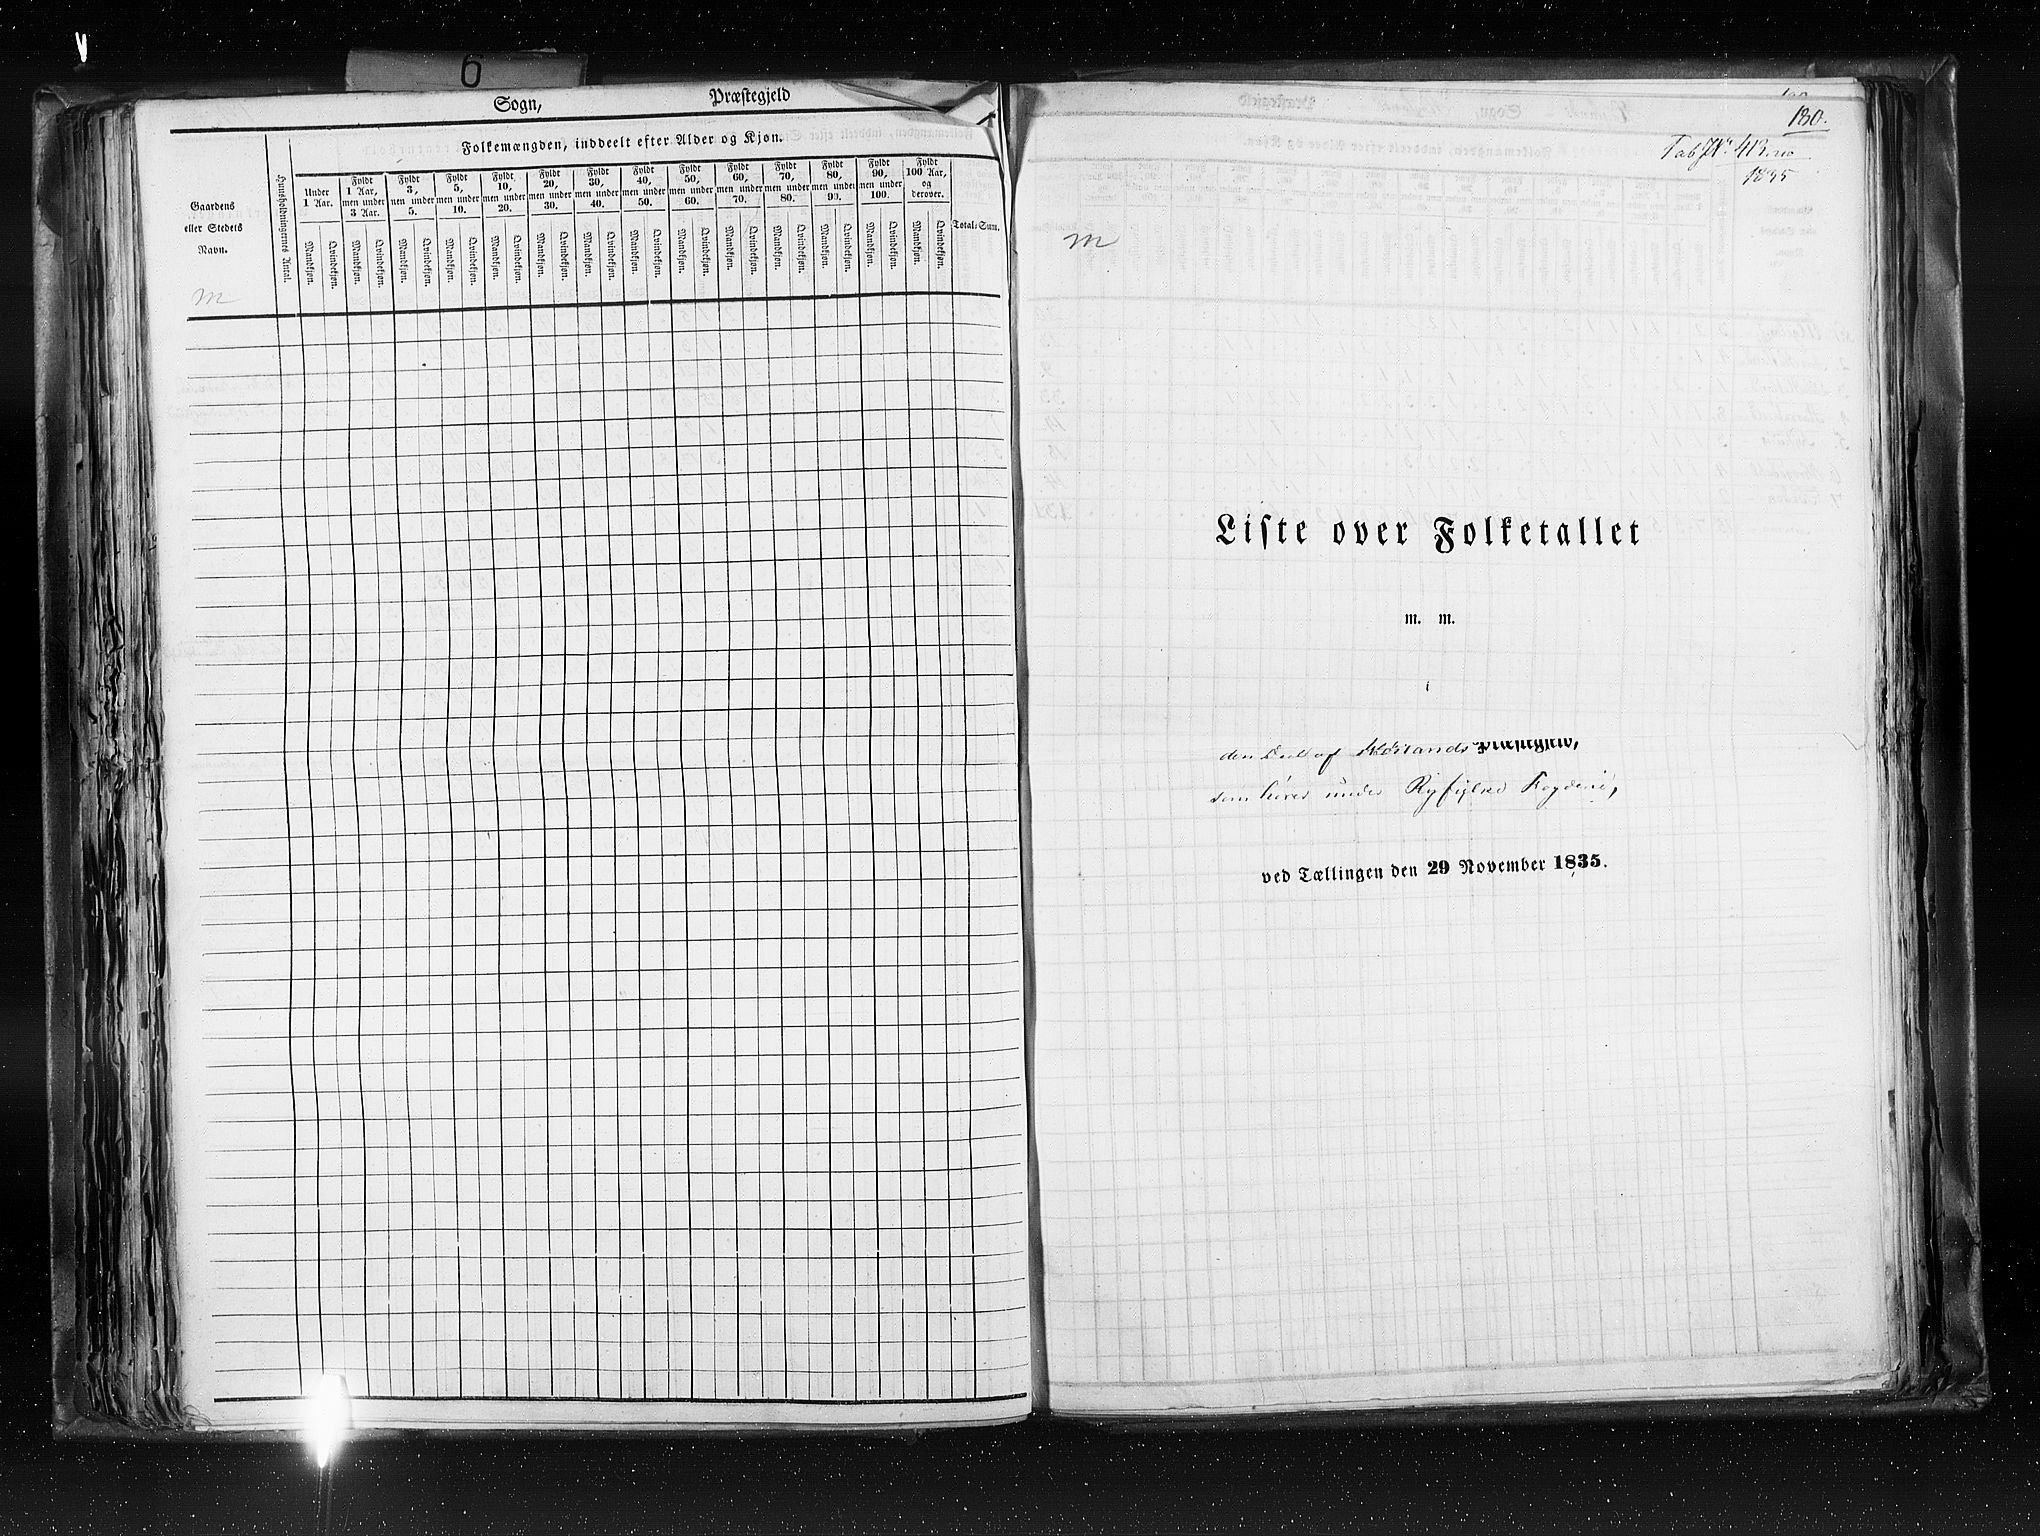 6
Sogn, Præstegjeld
Folkemængden, inddeelt efter Alder og Kjøn.
Gaardens
eller Stedets
Navn.
Huusholdningernes Antal.
Under
1 Aar.
Fyldt
1 Aar,
men under
3 Aar.
Fyldt
3,
men under
5.
Fyldt
5,
men under
10.
Fyldt
10,
men under
20.
Fyldt
20,
men under
30.
Fyldt
30,
men under
40.
Fyldt
40,
men under
50.
Fyldt
50,
men under
60.
Fyldt
60,
men under
70.
Fyldt
70,
men under
80.
Fyldt
80,
men under
90.
Fyldt
90,
men under
100.
Fyldt
100 Aar,
og
derover.
Total-Sum.
Mandkjøn. Qvindekjøn. Mandkjøn. Qvindekjøn. Mandkjøn. Qvindekjøn. Mandkjøn. Qvindekjøn. Mandkjøn. Qvindekjøn. Mandkjøn. Qvindekjøn. Mandkjøn. Qvindekjøn. Mandkjøn. Qvindekjøn. Mandkjøn. Qvindekjøn. Mandkjøn. Qvindekjøn. Mandkjøn. Qvindekjøn. Mandkjøn. Qvindekjøn. Mandkjøn. Qvindekjøn. Mandkjøn. Qvindekjøn.
m
180.
Tab N: 413
1835
m
Liste over Folketallet
m. m.
i
den Deel af Præstegjeld,
som hører under Ryfylke Fogderie,
ved Tællingen den 29 November 1835.